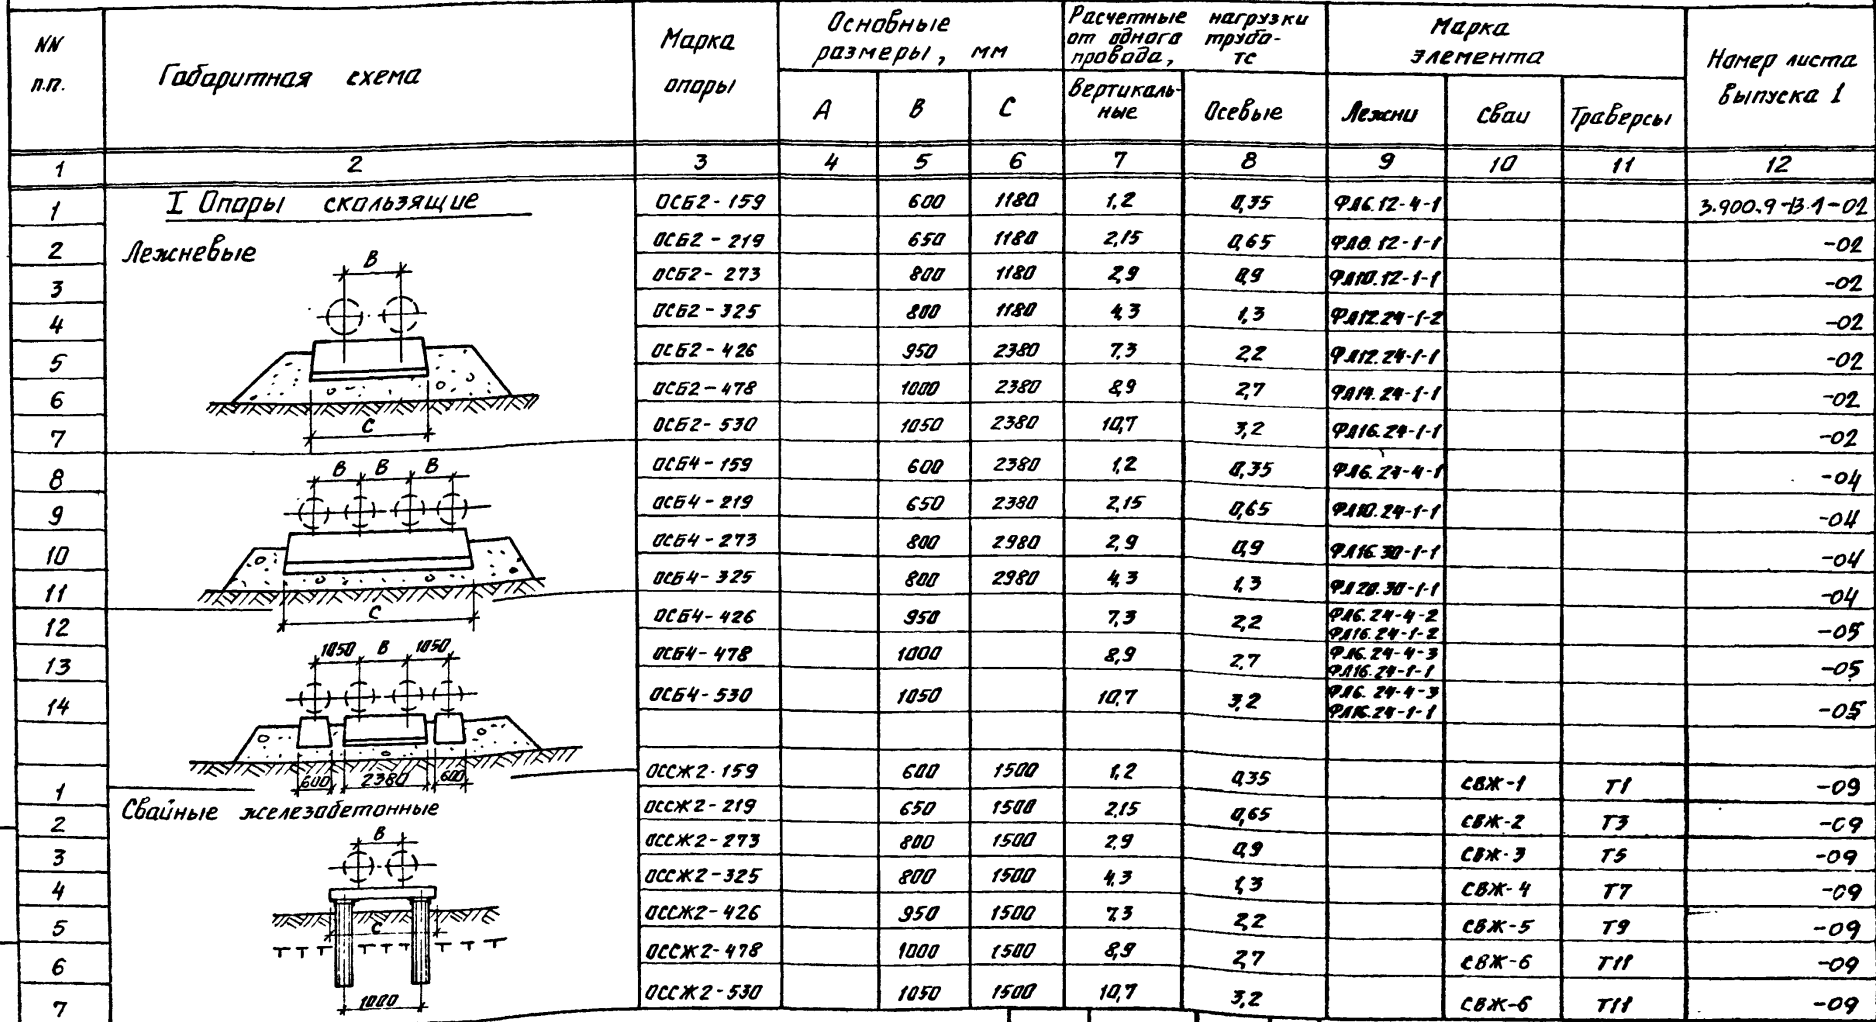 NN п.п. Габаритная схема Марка опоры Основные размеры, мм Расчетные нагрузки от одного трубопровода, тс Марка элемента Номер листа выпуска 1
А В С Вертикальные Осевые Лежни Сваи Траверсы
1 2 3 4 5 6 7 8 9 10 11 12
I Опоры скользящие
Лежневые
1 ОСБ2-159 600 1180 1,2 0,35 ФЛ6.12-4-1 3.900.9-13.1-02
2 ОСБ2-219 650 1180 2,15 0,65 ФЛ8.12-1-1 -02
3 ОСБ2-273 800 1180 2,9 0,9 ФЛ10.12-1-1 -02
4 ОСБ2-325 800 1180 4,3 1,3 ФЛ12.24-1-2 -02
5 ОСБ2-426 950 2380 7,3 2,2 ФЛ12.24-1-1 -02
6 ОСБ2-478 1000 2380 8,9 2,7 ФЛ14.24-1-1 -02
7 ОСБ2-530 1050 2380 10,7 3,2 ФЛ16.24-1-1 -02
В
С
8 ОСБ4-159 600 2380 1,2 0,35 ФЛ6.24-4-1 -04
9 ОСБ4-219 650 2380 2,15 0,65 ФЛ10.24-1-1 -04
10 ОСБ4-273 800 2980 2,9 0,9 ФЛ16.30-1-1 -04
11 ОСБ4-325 800 2980 4,3 1,3 ФЛ20.30-1-1 -04
В В В
С
12 ОСБ4-426 950 7,3 2,2 ФЛ6.24-4-2 ФЛ16.24-1-2 -05
13 ОСБ4-478 1000 8,9 2,7 ФЛ6.24-4-3 ФЛ16.24-1-1 -05
14 ОСБ4-530 1050 10,7 3,2 ФЛ6.24-4-3 ФЛ16.24-1-1 -05
1050 В 1050
600 2380 600
Свайные железобетонные
1 ОССЖ2-159 600 1500 1,2 0,35 СВЖ-1 Т1 -09
2 ОССЖ2-219 650 1500 2,15 0,65 СВЖ-2 Т3 -09
3 ОССЖ2-273 800 1500 2,9 0,9 СВЖ-3 Т5 -09
4 ОССЖ2-325 800 1500 4,3 1,3 СВЖ-4 Т7 -09
5 ОССЖ2-426 950 1500 7,3 2,2 СВЖ-5 Т9 -09
6 ОССЖ2-478 1000 1500 8,9 2,7 СВЖ-6 Т11 -09
7 ОССЖ2-530 1050 1500 10,7 3,2 СВЖ-6 Т11 -09
В
С
1000